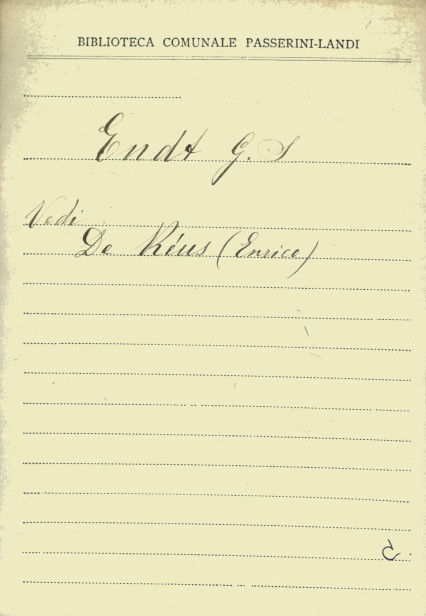 BIBLIOTECA COMUNALE PASSERINI-LANDI
Endt G. S
Vedi
De Réus (Enrico)